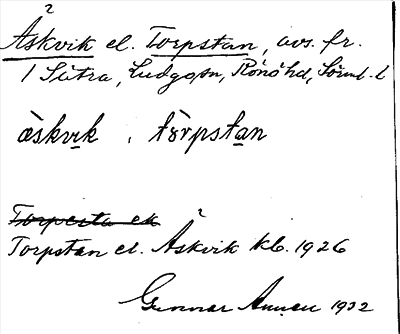 Åskvik el. Torpstan, avs. fr.
1 Sätra, Ludgo sn, Rönö hd, Sörml. l
å̀skvi̲k , tòrpsta̲n
Torpesta ek
Torpstan el. Åskvik kb. 1926
Gunnar 1932